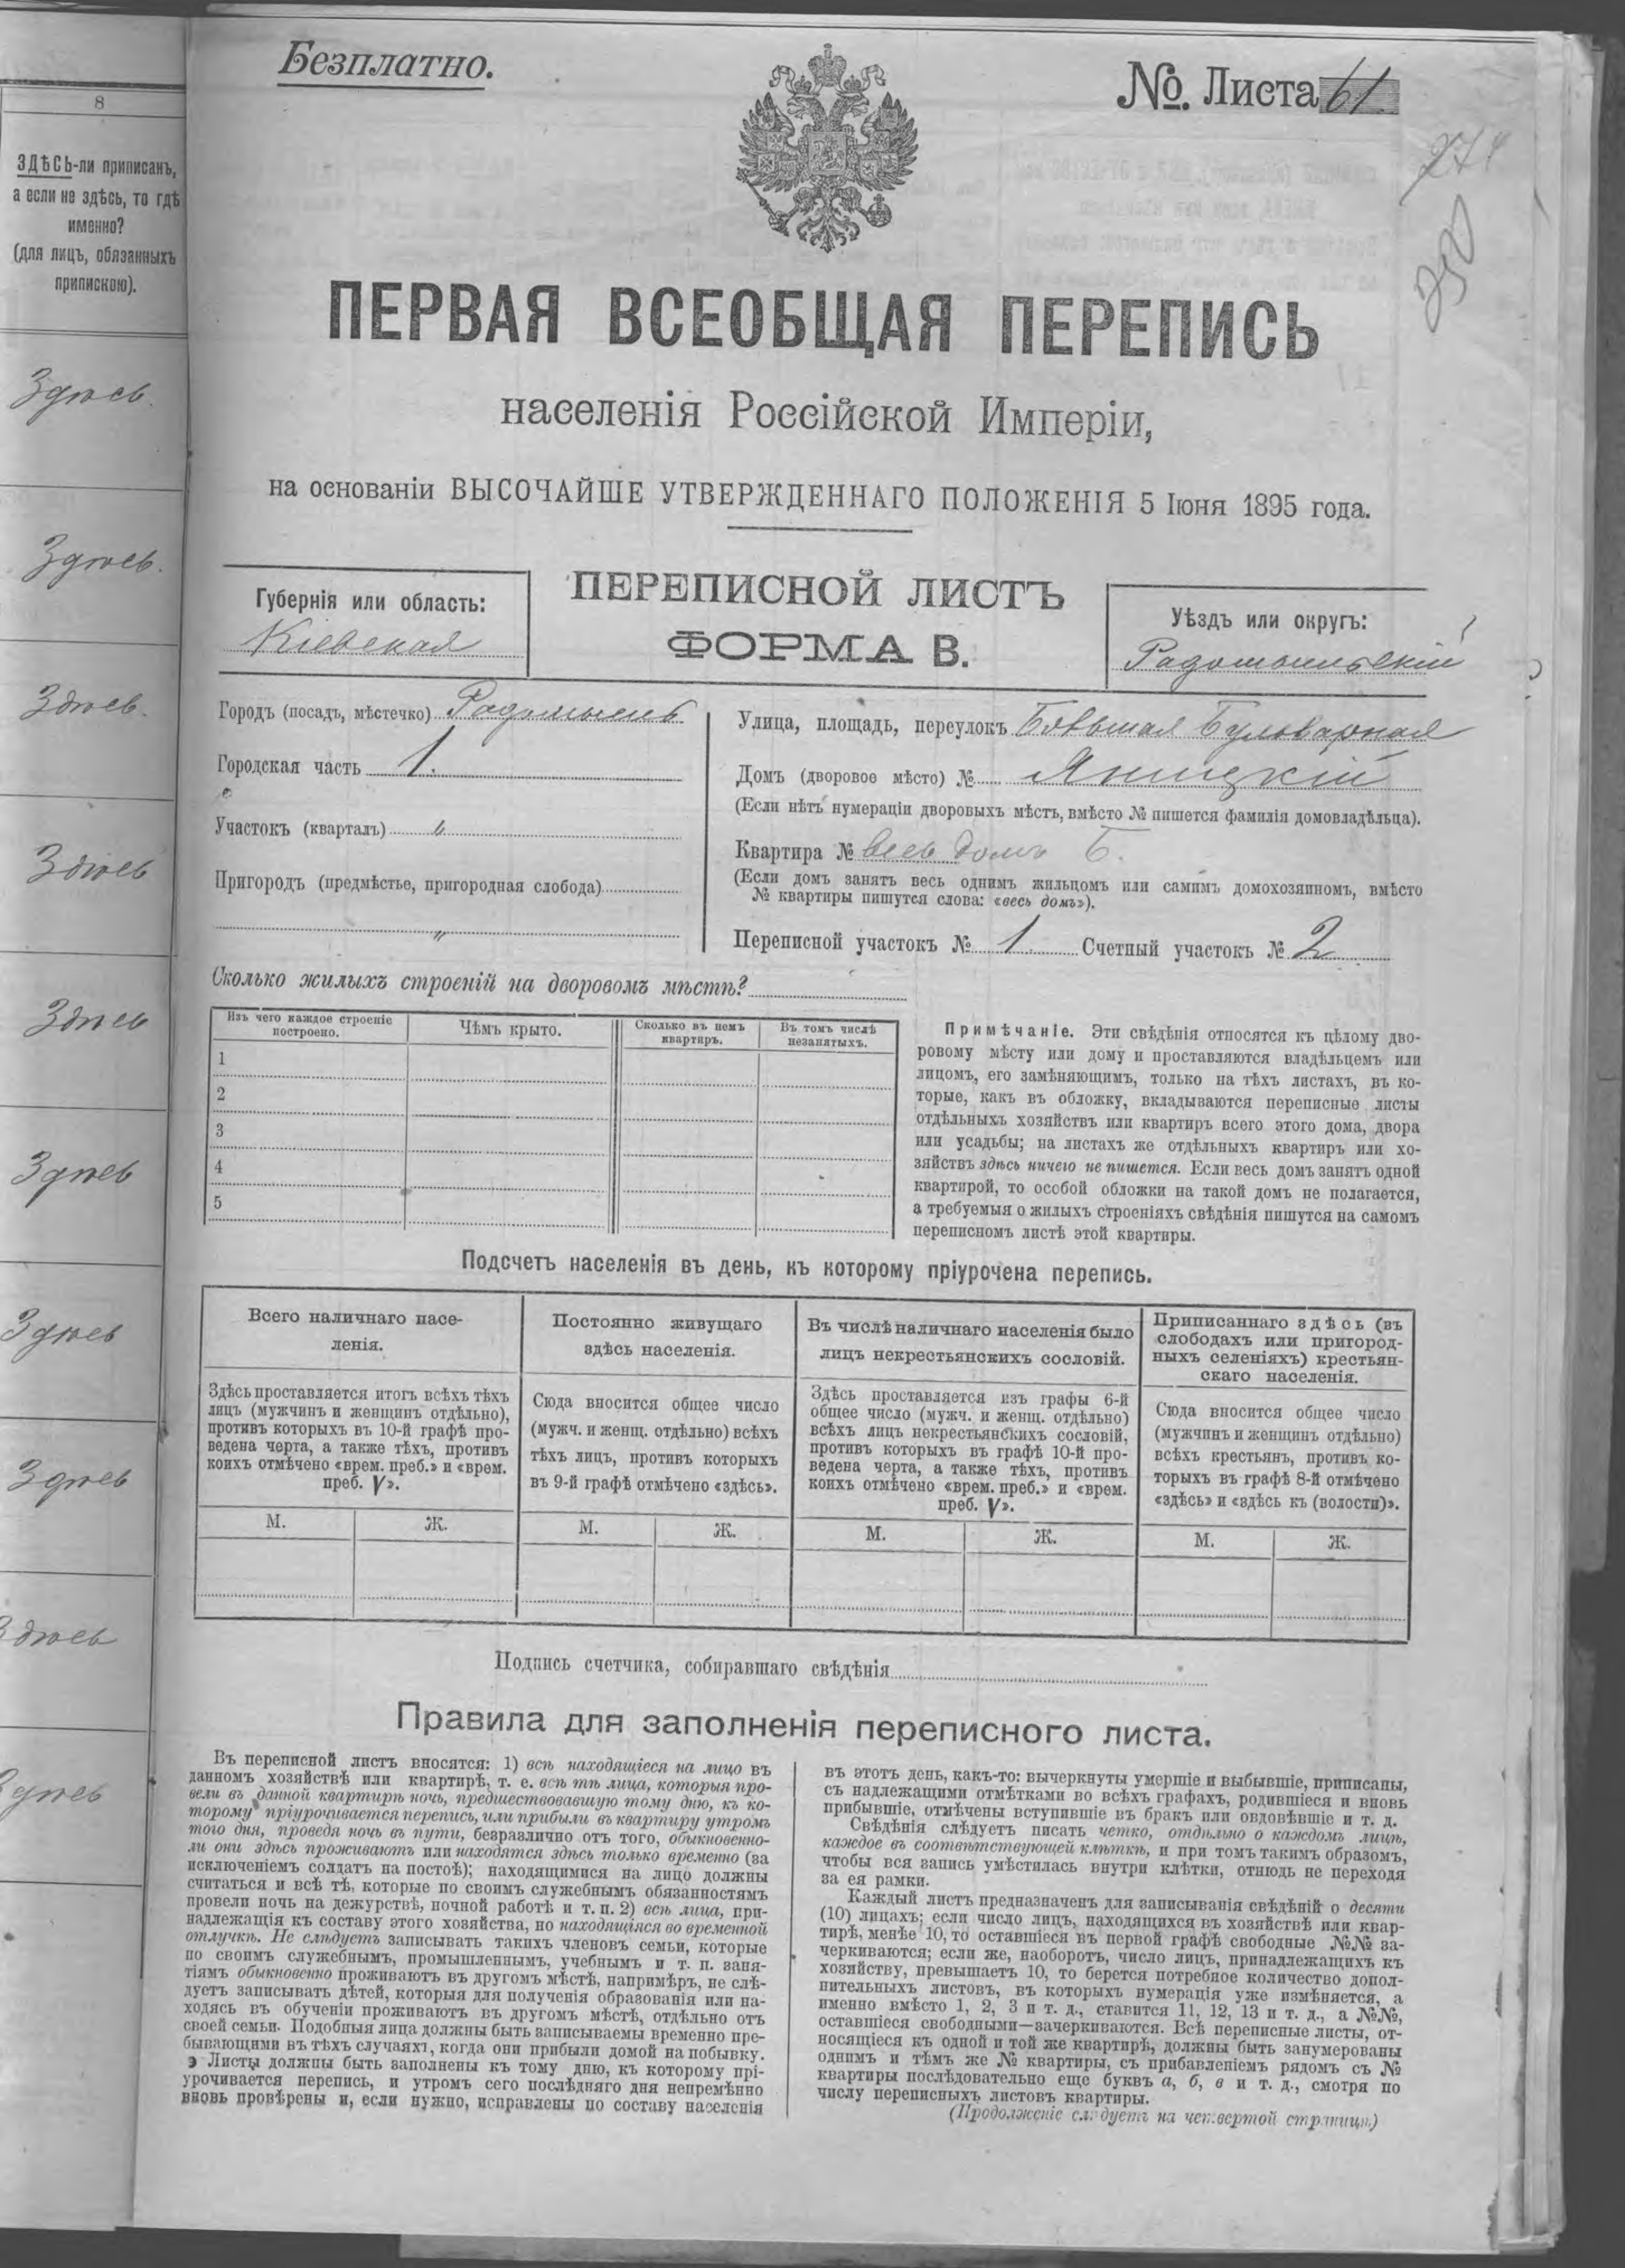 8
ЗДѢСЬ-ли приписанъ,
а если не здѣсь, то гдѣ
именно?
(для лицъ, обязанныхъ
припискою).
Здѣсь.
Здѣсь.
Здѣсь.
Здѣсь
Здѣсь
Здѣсь
Здѣсь
Здѣсь
Здѣсь
Здѣсь
Безплатно.
№. Листа 61
274
ПЕРВАЯ ВСЕОБЩАЯ ПЕРЕПИСЬ
населенія Россійской Имперіи,
на основаніи ВЫСОЧАЙШЕ УТВЕРЖДЕННАГО ПОЛОЖЕНІЯ 5 Іюня 1895 года.
Губернія или область:
Кіевская
ПЕРЕПИСНОЙ ЛИСТЪ
ФОРМА В.
Уѣздъ или округъ:
Радомысльскій
Городъ (посадъ, мѣстечко) Радомысль
Городская часть 1.
Участокъ (кварталъ) "
Пригородъ (предмѣстье, пригородная слобода)
"
Улица, площадь, переулокъ Большая Бульварная
Домъ (дворовое мѣсто) № Яницкій
(Если нѣтъ нумераціи дворовыхъ мѣстъ, вмѣсто № пишется фамилія домовладѣльца).
Квартира № весь домъ Б.
(Если домъ занятъ весь однимъ жильцомъ или самимъ домохозяиномъ, вмѣсто
№ квартиры пишутся слова: «весь домъ»).
Переписной участокъ № 1. Счетный участокъ № 2
Сколько жилыхъ строеній на дворовомъ мѣстѣ?
Изъ чего каждое строеніе
построено.
Чѣмъ крыто.
Сколько въ немъ
квартиръ.
Въ томъ числѣ
незанятыхъ.
1
2
3
4
5
Примѣчаніе. Эти свѣдѣнія относятся къ цѣлому дво-
ровому мѣсту или дому и проставляются владѣльцемъ или
лицомъ, его замѣняющимъ, только на тѣхъ листахъ, въ ко-
торые, какъ въ обложку, вкладываются переписные листы
отдѣльныхъ хозяйствъ или квартиръ всего этого дома, двора
или усадьбы; на листахъ же отдѣльныхъ квартиръ или хо-
зяйствъ здѣсь ничего не пишется. Если весь домъ занятъ одной
квартирой, то особой обложки на такой домъ не полагается,
а требуемыя о жилыхъ строеніяхъ свѣдѣнія пишутся на самомъ
переписномъ листѣ этой квартиры.
Подсчетъ населенія въ день, къ которому пріурочена перепись.
Всего наличнаго насе-
ленія.
Здѣсь проставляется итогъ всѣхъ тѣхъ
лицъ (мужчинъ и женщинъ отдѣльно),
противъ которыхъ въ 10-й графѣ про-
ведена черта, а также тѣхъ, противъ
коихъ отмѣчено «врем. преб.» и «врем.
преб. V».
М. Ж.
Постоянно живущаго
здѣсь населенія.
Сюда вносится общее число
(мужч. и женщ. отдѣльно) всѣхъ
тѣхъ лицъ, противъ которыхъ
въ 9-й графѣ отмѣчено «здѣсь».
М. Ж.
Въ числѣ наличнаго населенія было
лицъ некрестьянскихъ сословій.
Здѣсь проставляется изъ графы 6-й
общее число (мужч. и женщ. отдѣльно)
всѣхъ лицъ некрестьянскихъ сословій,
противъ которыхъ въ графѣ 10-й про-
ведена черта, а также тѣхъ, противъ
коихъ отмѣчено «врем. преб.» и «врем.
преб. V».
М. Ж.
Приписаннаго здѣсь (въ
слободахъ или пригород-
ныхъ селеніяхъ) крестьян-
скаго населенія.
Сюда вносится общее число
(мужчинъ и женщинъ отдѣльно)
всѣхъ крестьянъ, противъ ко-
торыхъ въ графѣ 8-й отмѣчено
«здѣсь» и «здѣсь къ (волости)».
М. Ж.
Подпись счетчика, собиравшаго свѣдѣнія
Правила для заполненія переписного листа.
Въ переписной листъ вносятся: 1) всѣ находящіеся на лицо въ
данномъ хозяйствѣ или квартирѣ, т. е. всѣ тѣ лица, которыя про-
вели въ данной квартирѣ ночь, предшествовавшую тому дню, къ ко-
торому пріурочивается перепись, или прибыли въ квартиру утромъ
того дня, проведя ночь въ пути, безразлично отъ того, обыкновенно-
ли они здѣсь проживаютъ или находятся здѣсь только временно (за
исключеніемъ солдатъ на постоѣ); находящимися на лицо должны
считаться и всѣ тѣ, которые по своимъ служебнымъ обязанностямъ
провели ночь на дежурствѣ, ночной работѣ и т. п. 2) всѣ лица, при-
надлежащія къ составу этого хозяйства, но находящіяся во временной
отлучкѣ. Не слѣдуетъ записывать такихъ членовъ семьи, которые
по своимъ служебнымъ, промышленнымъ, учебнымъ и т. п. заня-
тіямъ обыкновенно проживаютъ въ другомъ мѣстѣ, напримѣръ, не слѣ-
дуетъ записывать дѣтей, которыя для полученія образованія или на-
ходясь въ обученіи проживаютъ въ другомъ мѣстѣ, отдѣльно отъ
своей семьи. Подобныя лица должны быть записываемы временно пре-
бывающими въ тѣхъ случаяхъ, когда они прибыли домой на побывку.
Листы должны быть заполнены къ тому дню, къ которому прі-
урочивается перепись, и утромъ сего послѣдняго дня непремѣнно
вновь провѣрены и, если нужно, исправлены по составу населенія
въ этотъ день, какъ-то: вычеркнуты умершіе и выбывшіе, приписаны,
съ надлежащими отмѣтками во всѣхъ графахъ, родившіеся и вновь
прибывшіе, отмѣчены вступившіе въ бракъ или овдовѣвшіе и т. д.
Свѣдѣнія слѣдуетъ писать четко, отдѣльно о каждомъ лицѣ,
каждое въ соотвѣтствующей клѣткѣ, и при томъ такимъ образомъ,
чтобы вся запись умѣстилась внутри клѣтки, отнюдь не переходя
за ея рамки.
Каждый листъ предназначенъ для записыванія свѣдѣній о десяти
(10) лицахъ; если число лицъ, находящихся въ хозяйствѣ или квар-
тирѣ, менѣе 10, то оставшіеся въ первой графѣ свободные №№ за-
черкиваются; если же, наоборотъ, число лицъ, принадлежащихъ къ
хозяйству, превышаетъ 10, то берется потребное количество допол-
нительныхъ листовъ, въ которыхъ нумерація уже измѣняется, а
именно вмѣсто 1, 2, 3 и т. д., ставится 11, 12, 13 и т. д., а №№,
оставшіеся свободными—зачеркиваются. Всѣ переписные листы, от-
носящіеся къ одной и той же квартирѣ, должны быть занумерованы
однимъ и тѣмъ же № квартиры, съ прибавленіемъ рядомъ съ №
квартиры послѣдовательно еще буквъ а, б, в и т. д., смотря по
числу переписныхъ листовъ квартиры.
(Продолженіе слѣдуетъ на четвертой страницѣ)